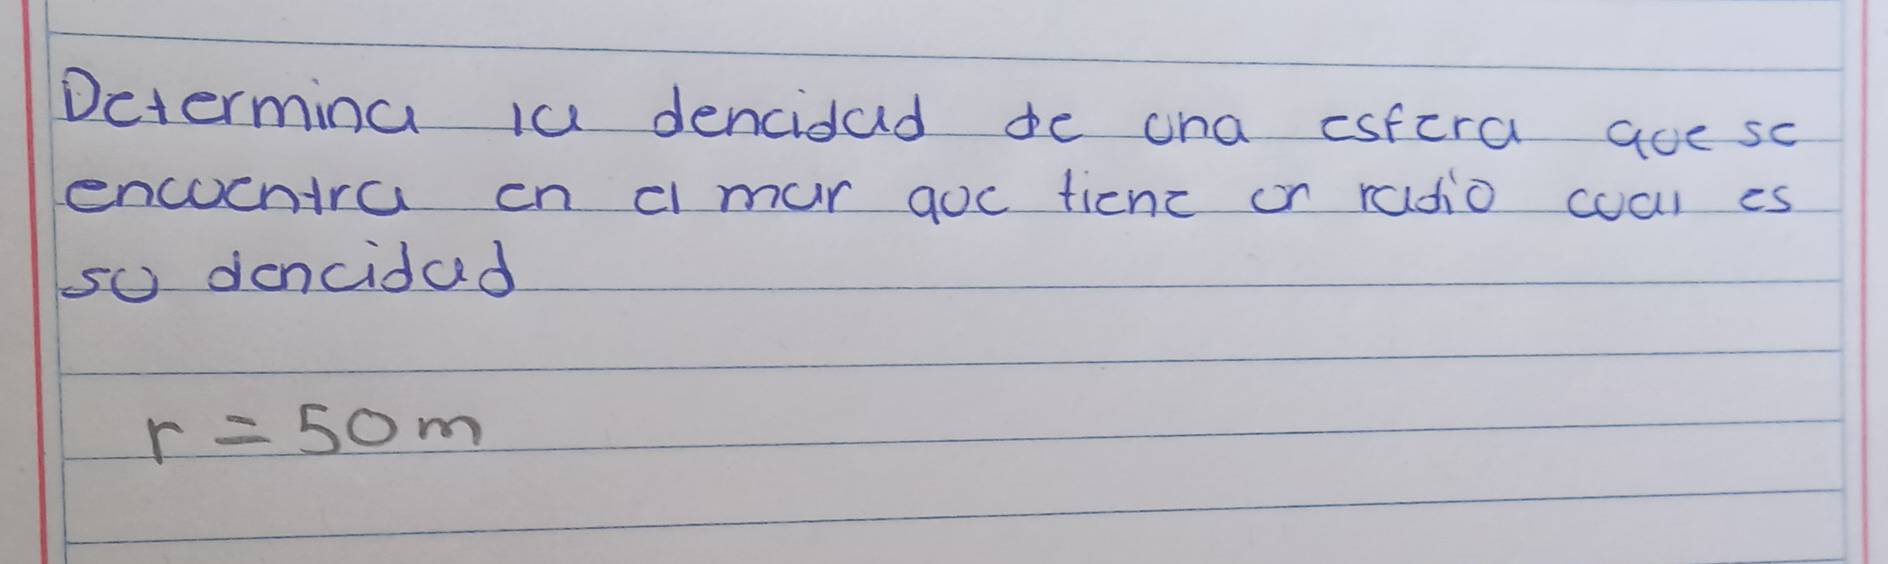 Determina la dencidad de una esfera que se
encuentra en el mar que tiene un radio cual es
su dencidad
r = 50 m